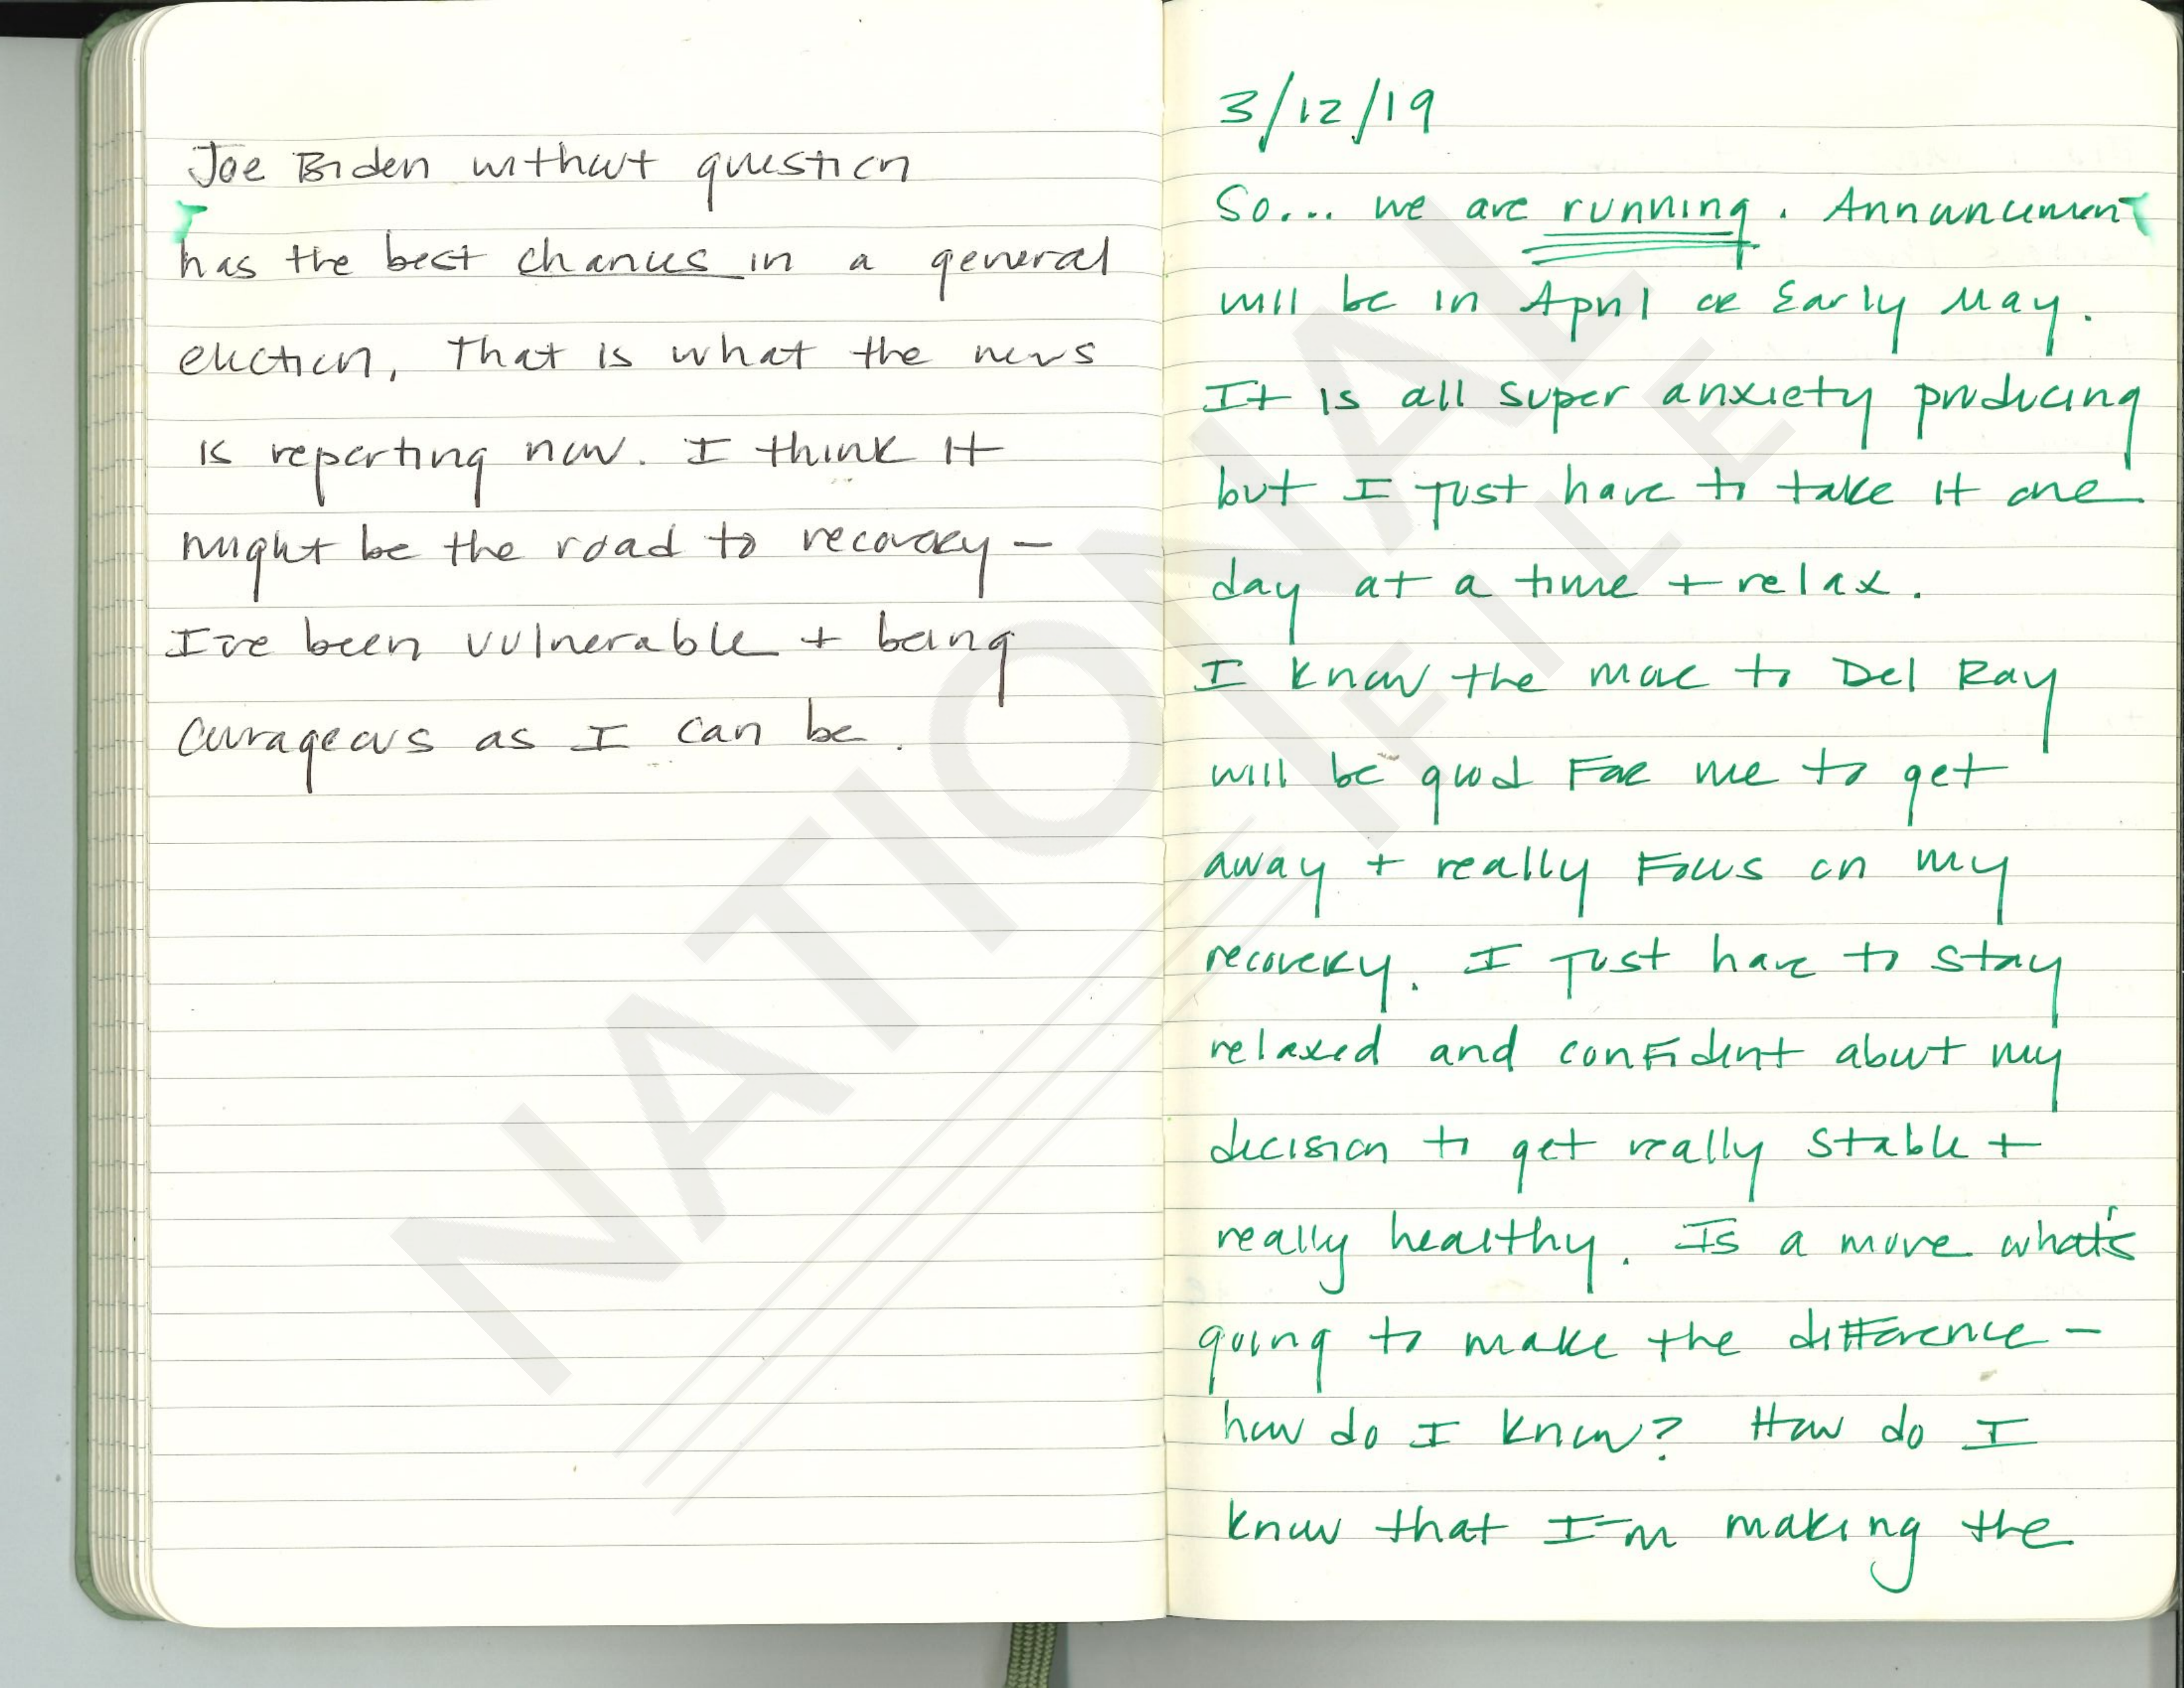 Joe Biden without question
has the best chances in a general
election, That is what the news
is reporting now. I think it
might be the road to recovery –
I've been vulnerable + being
courageous as I can be.
3/12/19
So... we are running. Announcement
will be in April or Early May.
It is all super anxiety producing
but I just have to take it one
day at a time + relax.
I know the move to Del Ray
will be good for me to get
away + really focus on my
recovery. I just have to stay
relaxed and confident about my
decision to get really stable +
really healthy. Is a move what's
going to make the difference –
how do I know? How do I
know that I'm making the
NATIONAL
FILE